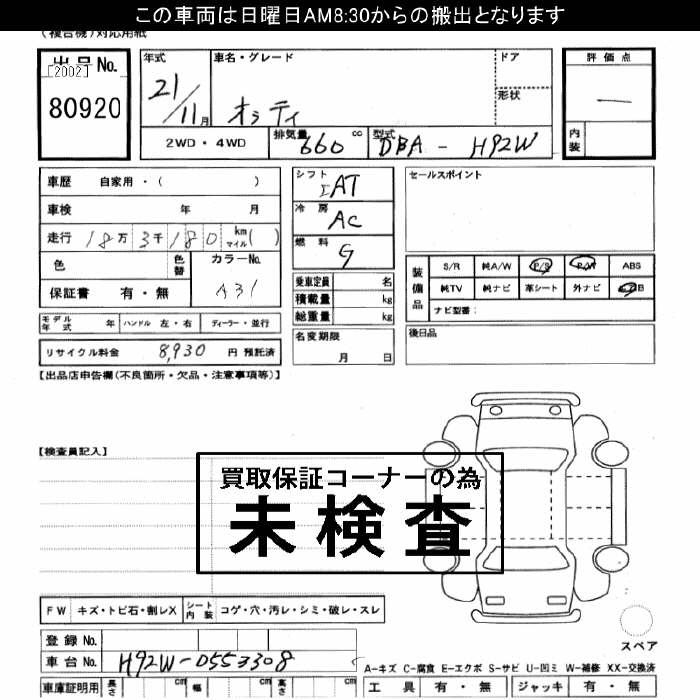 この車両は日曜日AM8:30からの搬出となります
(複合機)対応用紙
出品No.
[2002]
80920
年式
21/11月
車名・グレード
オッティ
ドア
形状
評価点
―
内装
2WD・4WD
排気量 660 cc
型式 DBA - H92W
車歴 自家用・( )
車検 年 月
走行 18万3千180 km マイル( )
色
色替
カラーNo.
A31
保証書 有・無
シフト
IAT
冷房
AC
燃料
G
乗車定員 名
積載量 kg
総重量 kg
セールスポイント
装備品
S/R 純A/W P/S P/W ABS
純TV 純ナビ 革シート 外ナビ
ナビ型番:
モデル年式 年 ハンドル 左・右 ディーラー・並行
リサイクル料金 8,930 円 預託済
名変期限
月 日
後日品
【出品店申告欄(不良箇所・欠品・注意事項等)】
【検査員記入】
買取保証コーナーの為
未検査
FW キズ・トビ石・割レX シート内装 コゲ・穴・汚レ・シミ・破レ・スレ
スペア
登録No.
車台No. H92W-0553308
A-キズ C-腐食 E-エクボ S-サビ U-凹ミ W-補修 XX-交換済
車庫証明用 長さ cm 幅 cm 高さ cm
工具 有・無 ジャッキ 有・無